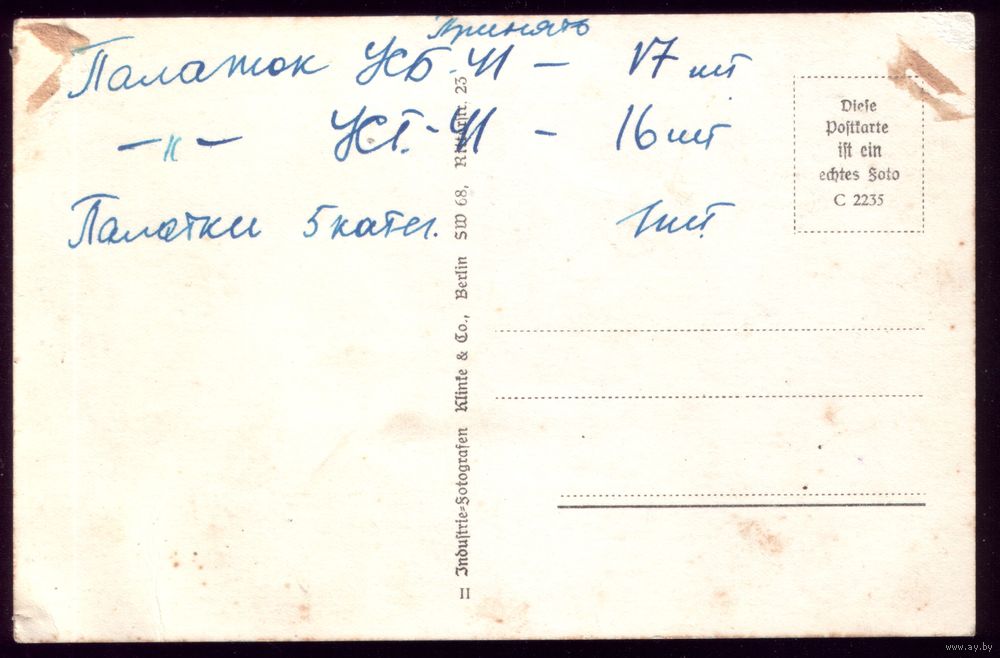 Принять
Палаток УСБ-41 — 17 шт
—〃— УСТ-41 — 16 шт
Палатки 5 катег. 1 шт
Diese
Postkarte
ist ein
echtes Foto
C 2235
II Industrie=Fotografen Klinke & Co., Berlin SW 68, Ritterstr. 23
www.ay.by